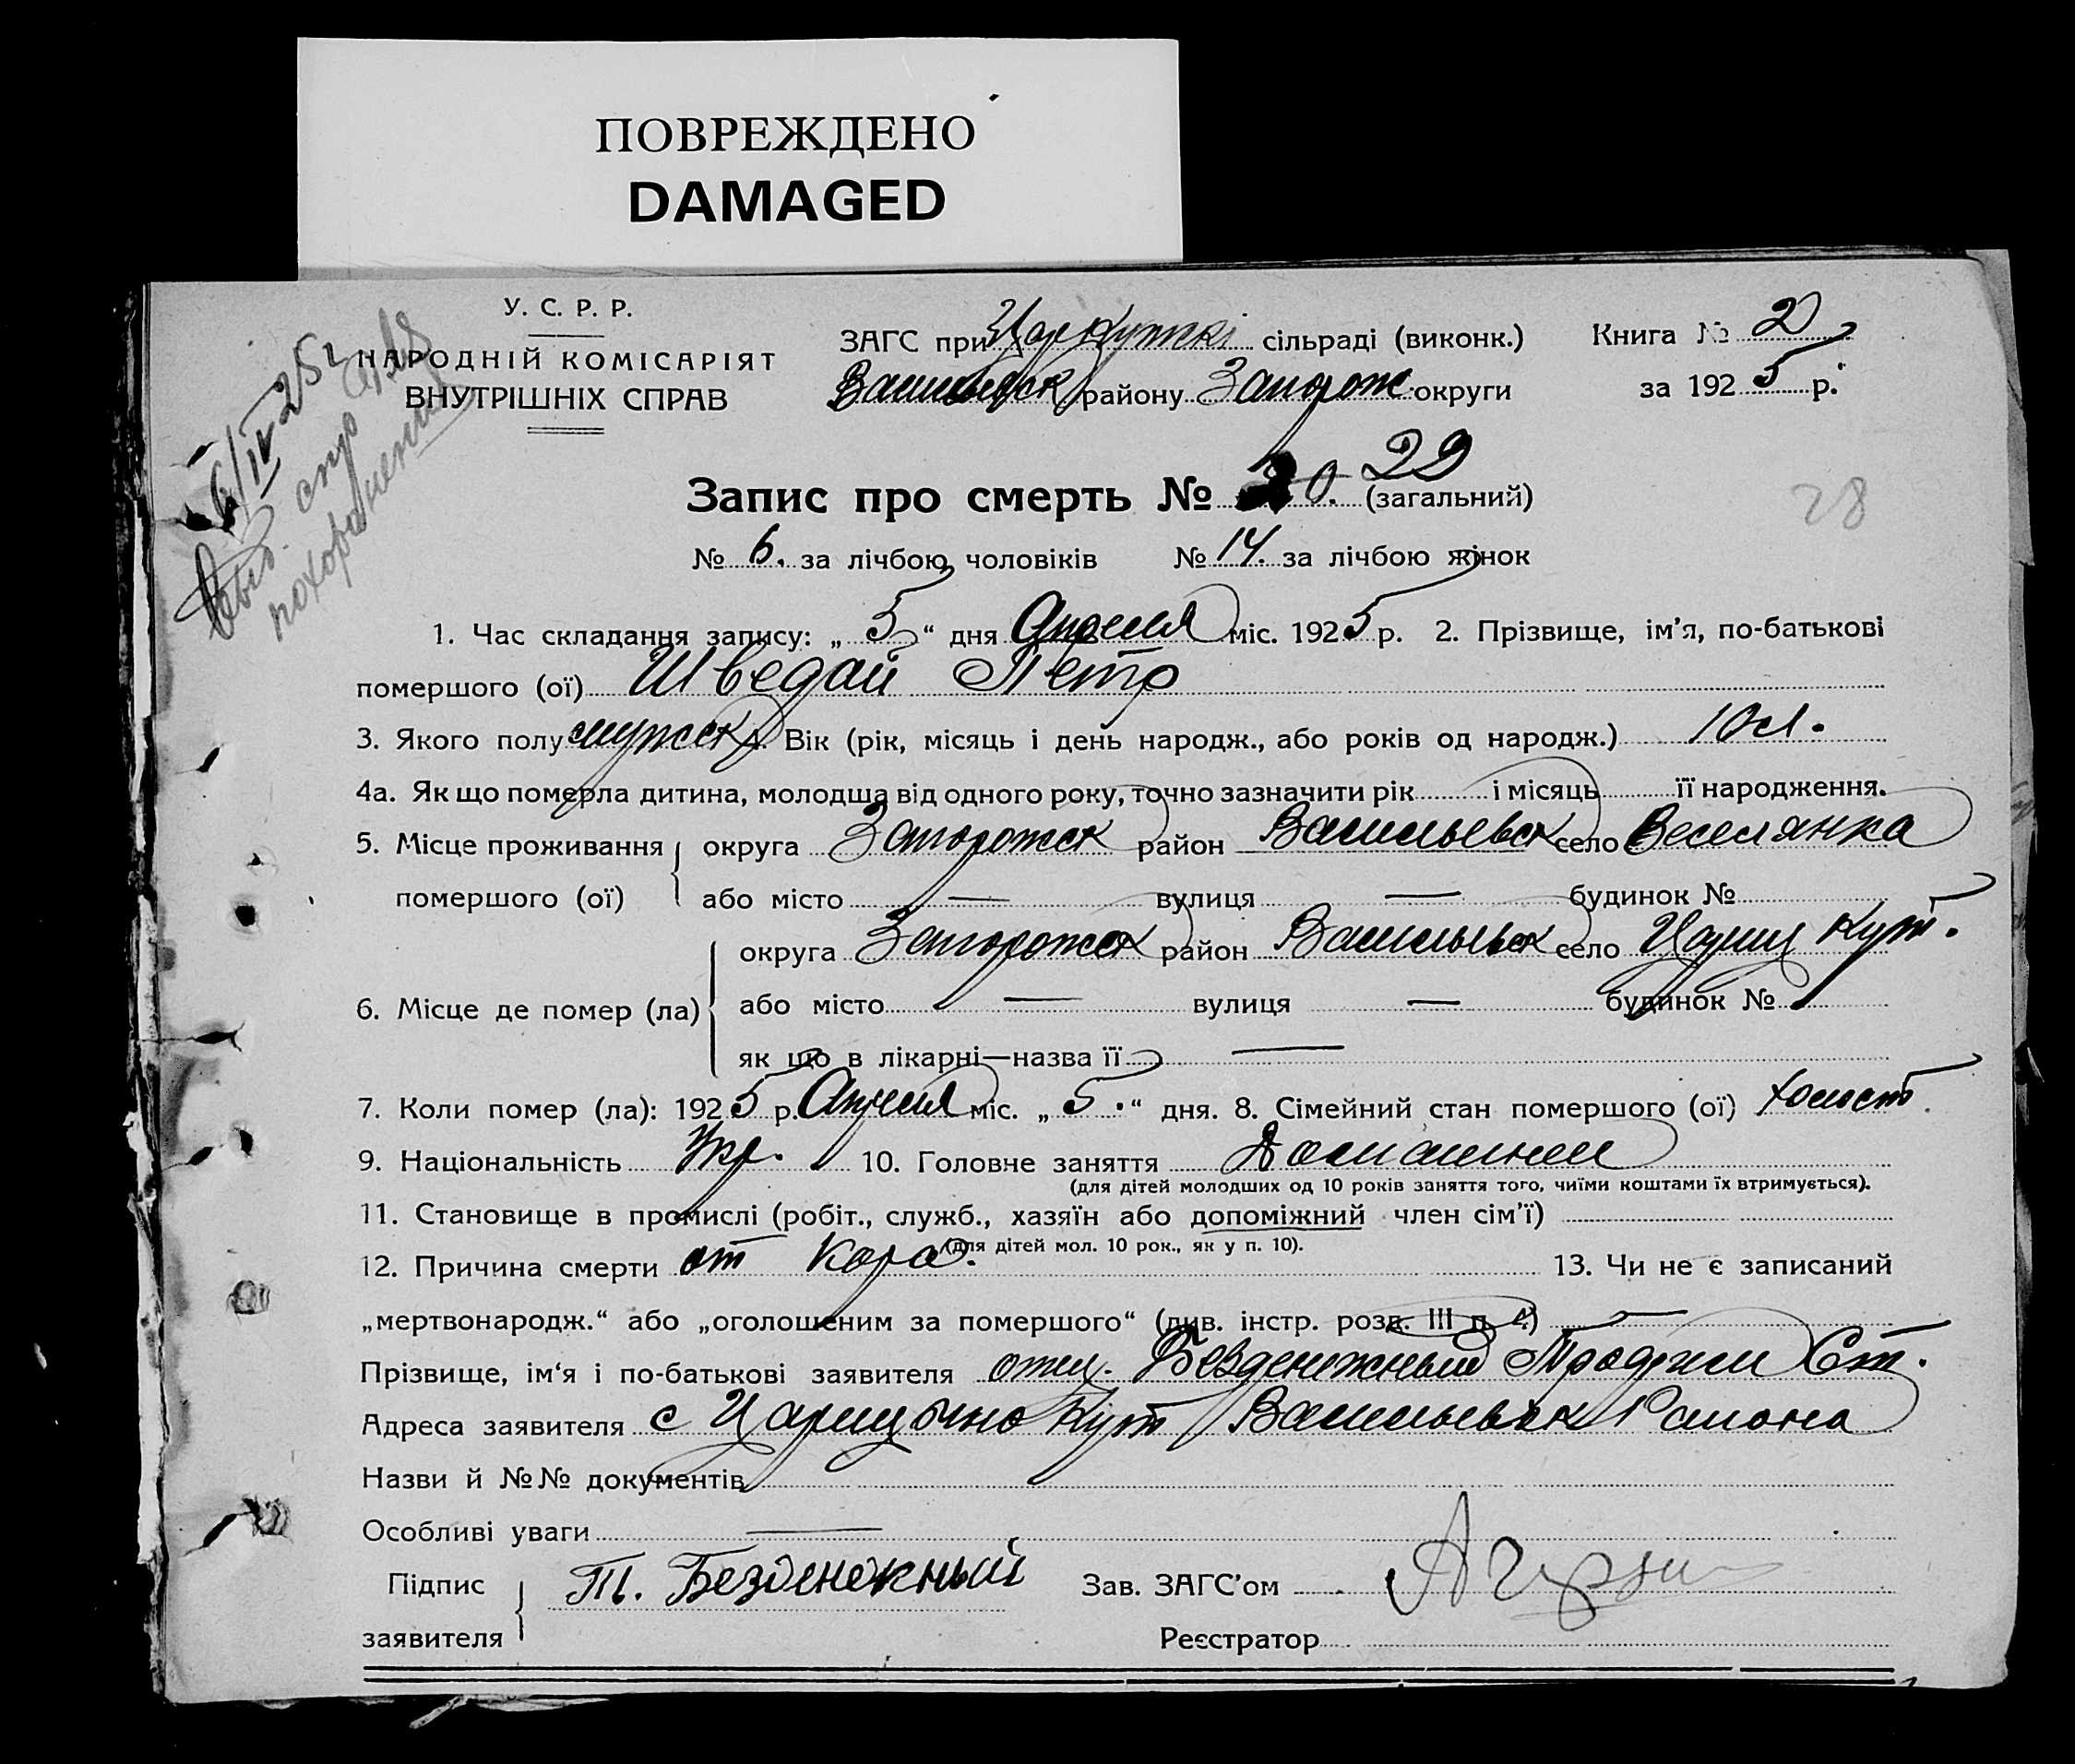 ПОВРЕЖДЕНО
DAMAGED
У. С. Р. Р.
НАРОДНІЙ КОМІСАРІЯТ
ВНУТРІШНІХ СПРАВ
6/IV 25 г
Выд. спр
похоронении
ЗАГС при Царкутскі сільраді (виконк.) Книга № 2
Васильевск району Запорож округи за 1925 р.
Запис про смерть № 20. 29 (загальний)
28
№ 6. за лічбою чоловіків № 14. за лічбою жінок
1. Час складання запису: „ 5 “ дня Апреля міс. 1925 р. 2. Прізвище, ім’я, по-батькові
помершого (ої) Шведай Петр
3. Якого полу мужск 4. Вік (рік, місяць і день народж., або років од народж.) 10 л.
4а. Як що померла дитина, молодща від одного року, точно зазначити рік і місяць її народження.
5. Місце проживання округа Запорожск район Васильевск село Веселянка
помершого (ої) або місто — вулиця — будинок №
округа Запорожск район Васильевск село Цариц Кут.
6. Місце де помер (ла) або місто — вулиця — будинок №
як що в лікарні—назва її —
7. Коли помер (ла): 1925 р. Апреля міс. „ 5. “ дня. 8. Сімейний стан помершого (ої) холост
9. Національність Укр. 10. Головне заняття Домашнее
(для дітей молодших од 10 років заняття того, чиїми коштами їх втримується).
11. Становище в промислі (робіт., служб., хазяїн або допоміжний член сім’ї)
(для дітей мол. 10 рок., як у п. 10).
12. Причина смерти от Кора. 13. Чи не є записаний
„мертвонародж.“ або „оголошеним за помершого“ (див. інстр. розд. III п. 4) —
Прізвище, ім‘я і по-батькові заявителя отец. Безденежный Трофим Ст.
Адреса заявителя с Царицыно Кут Васильевск Района
Назви й №№ документів
Особливі уваги —
Підпис Т. Безденежный Зав. ЗАГС’ом
заявителя Реєстратор